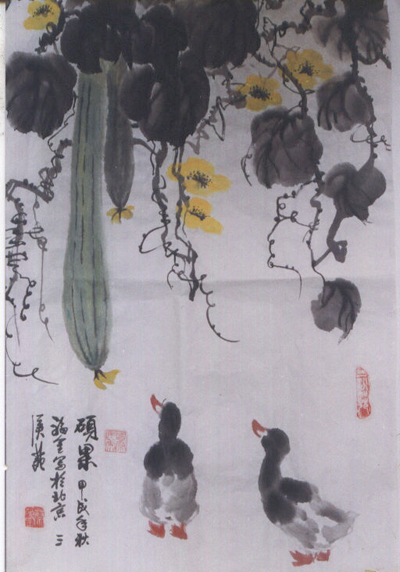 碩果
甲戌年秋
福全写於北京三
溪苑